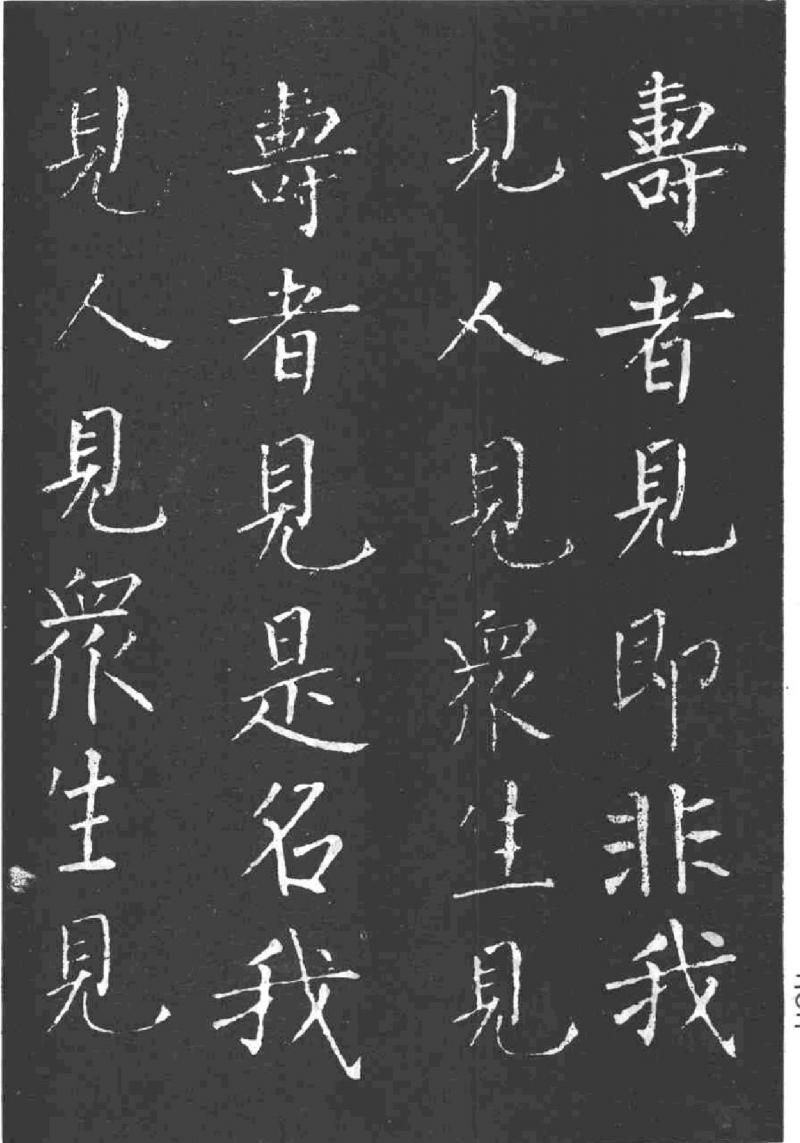 壽者見即非我
見人見眾生見
壽者見是名我
見人見眾生見